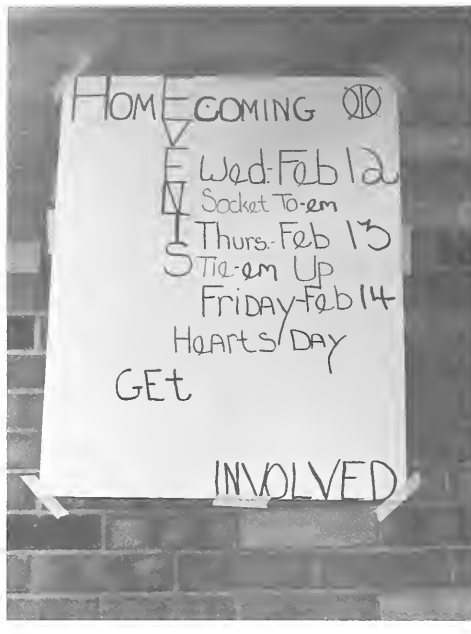 HomECOMING
EVENTS
Wed-Feb 12
Socket To-em
Thurs-Feb 13
Tie-em Up
FRiDAY-Feb 14
HeARts DAY
GEt
INVOLVED